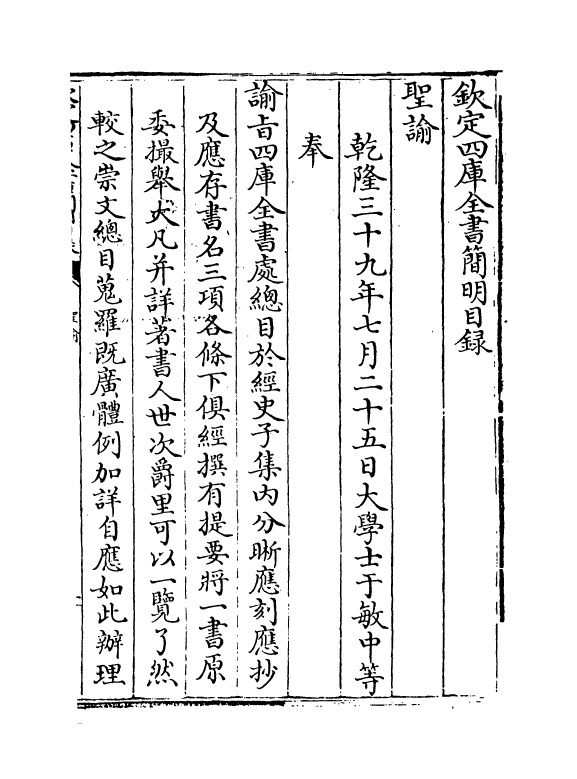 欽定四庫全書簡明目録
聖諭
乾隆三十九年七月二十五日大學士于敏中等
奉
諭旨四庫全書處總目於經史子集内分晰應刻應抄
及應存書名三項各條下俱經撰有提要將一書原
委撮舉大凡并詳著書人世次爵里可以一覽了然
較之崇文總目蒐羅既廣體例加詳自應如此辦理